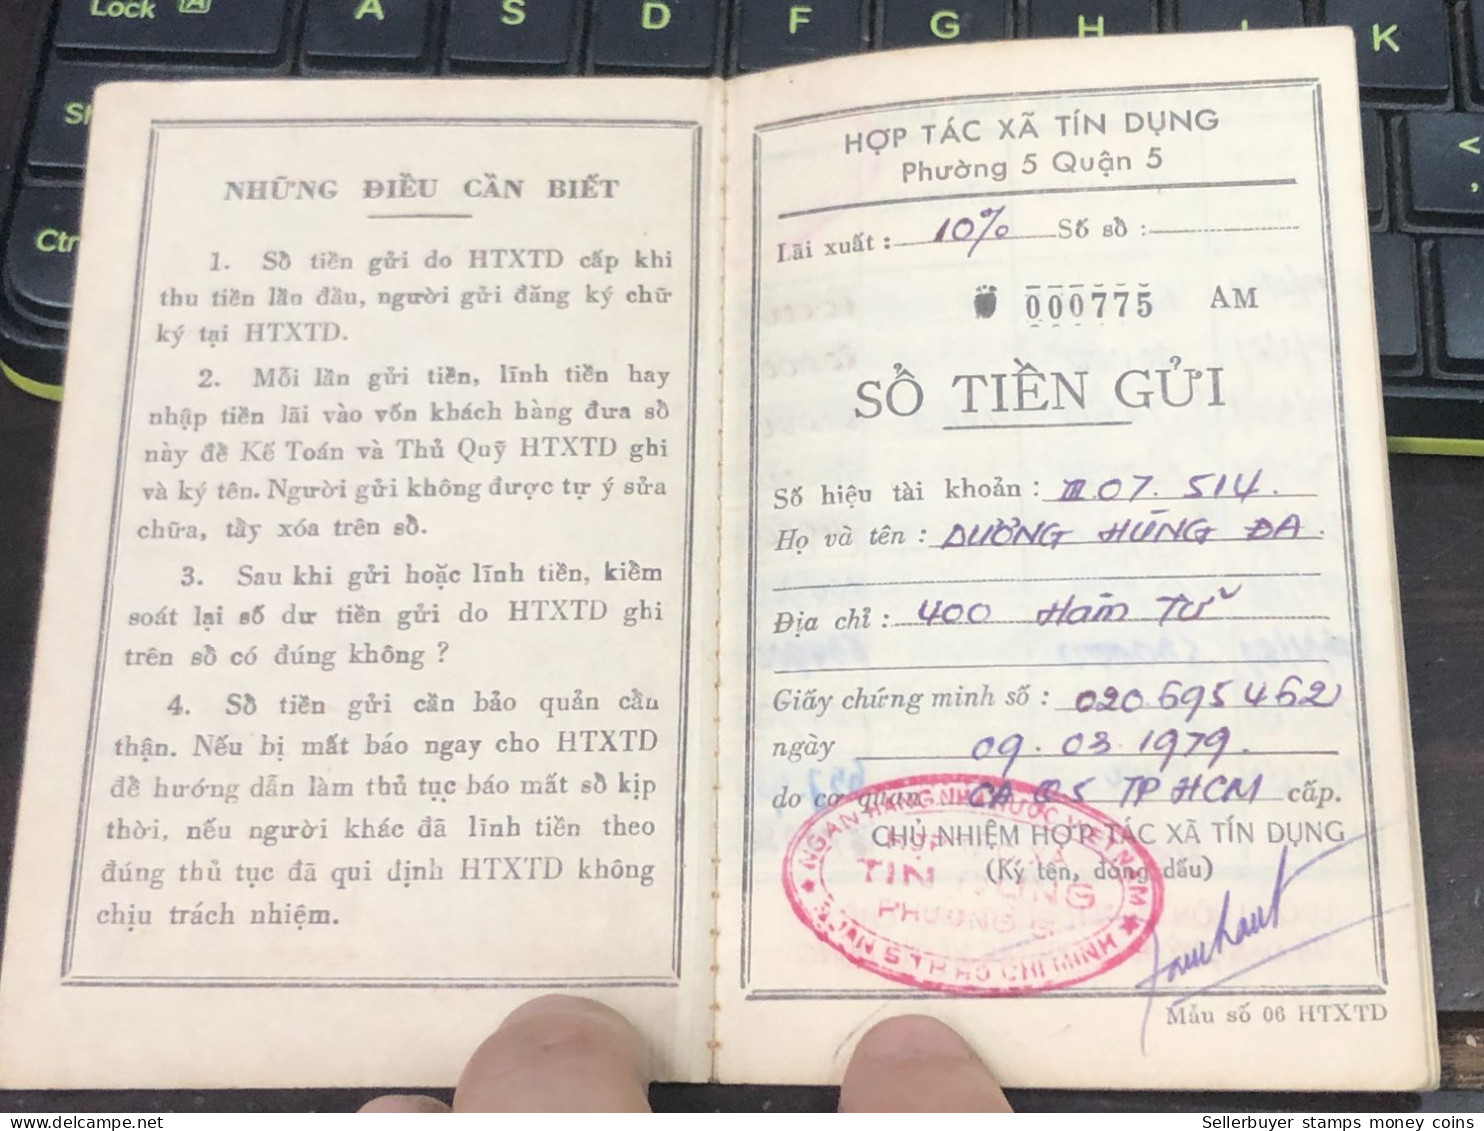 Lock A S D F G H J K
NHỮNG ĐIỀU CẦN BIẾT
1. Sổ tiền gửi do HTXTD cấp khi
thu tiền lần đầu, người gửi đăng ký chữ
ký tại HTXTD.
2. Mỗi lần gửi tiền, lĩnh tiền hay
nhập tiền lãi vào vốn khách hàng đưa sổ
này để Kế Toán và Thủ Quỹ HTXTD ghi
và ký tên. Người gửi không được tự ý sửa
chữa, tẩy xóa trên sổ.
3. Sau khi gửi hoặc lĩnh tiền, kiểm
soát lại số dư tiền gửi do HTXTD ghi
trên sổ có đúng không ?
4. Sổ tiền gửi cần bảo quản cẩn
thận. Nếu bị mất báo ngay cho HTXTD
để hướng dẫn làm thủ tục báo mất sổ kịp
thời, nếu người khác đã lĩnh tiền theo
đúng thủ tục đã qui định HTXTD không
chịu trách nhiệm.
HỢP TÁC XÃ TÍN DỤNG
Phường 5 Quận 5
Lãi xuất : 10% Số sổ :
000775 AM
SỔ TIỀN GỬI
Số hiệu tài khoản : III 07. 514.
Họ và tên : DƯƠNG HÙNG ĐA.
Địa chỉ : 400 Hàm Tử
Giấy chứng minh số : 020695462
ngày 09. 03. 1979.
do cơ quan CA Q5 TP HCM cấp.
CHỦ NHIỆM HỢP TÁC XÃ TÍN DỤNG
(Ký tên, đóng dấu)
NGÂN HÀNG NHÀ NƯỚC VIỆT NAM
TÍN DỤNG
PHƯỜNG 5
QUẬN 5 TP HỒ CHÍ MINH
Mẫu số 06 HTXTD
Sellerbuyer stamps money coins